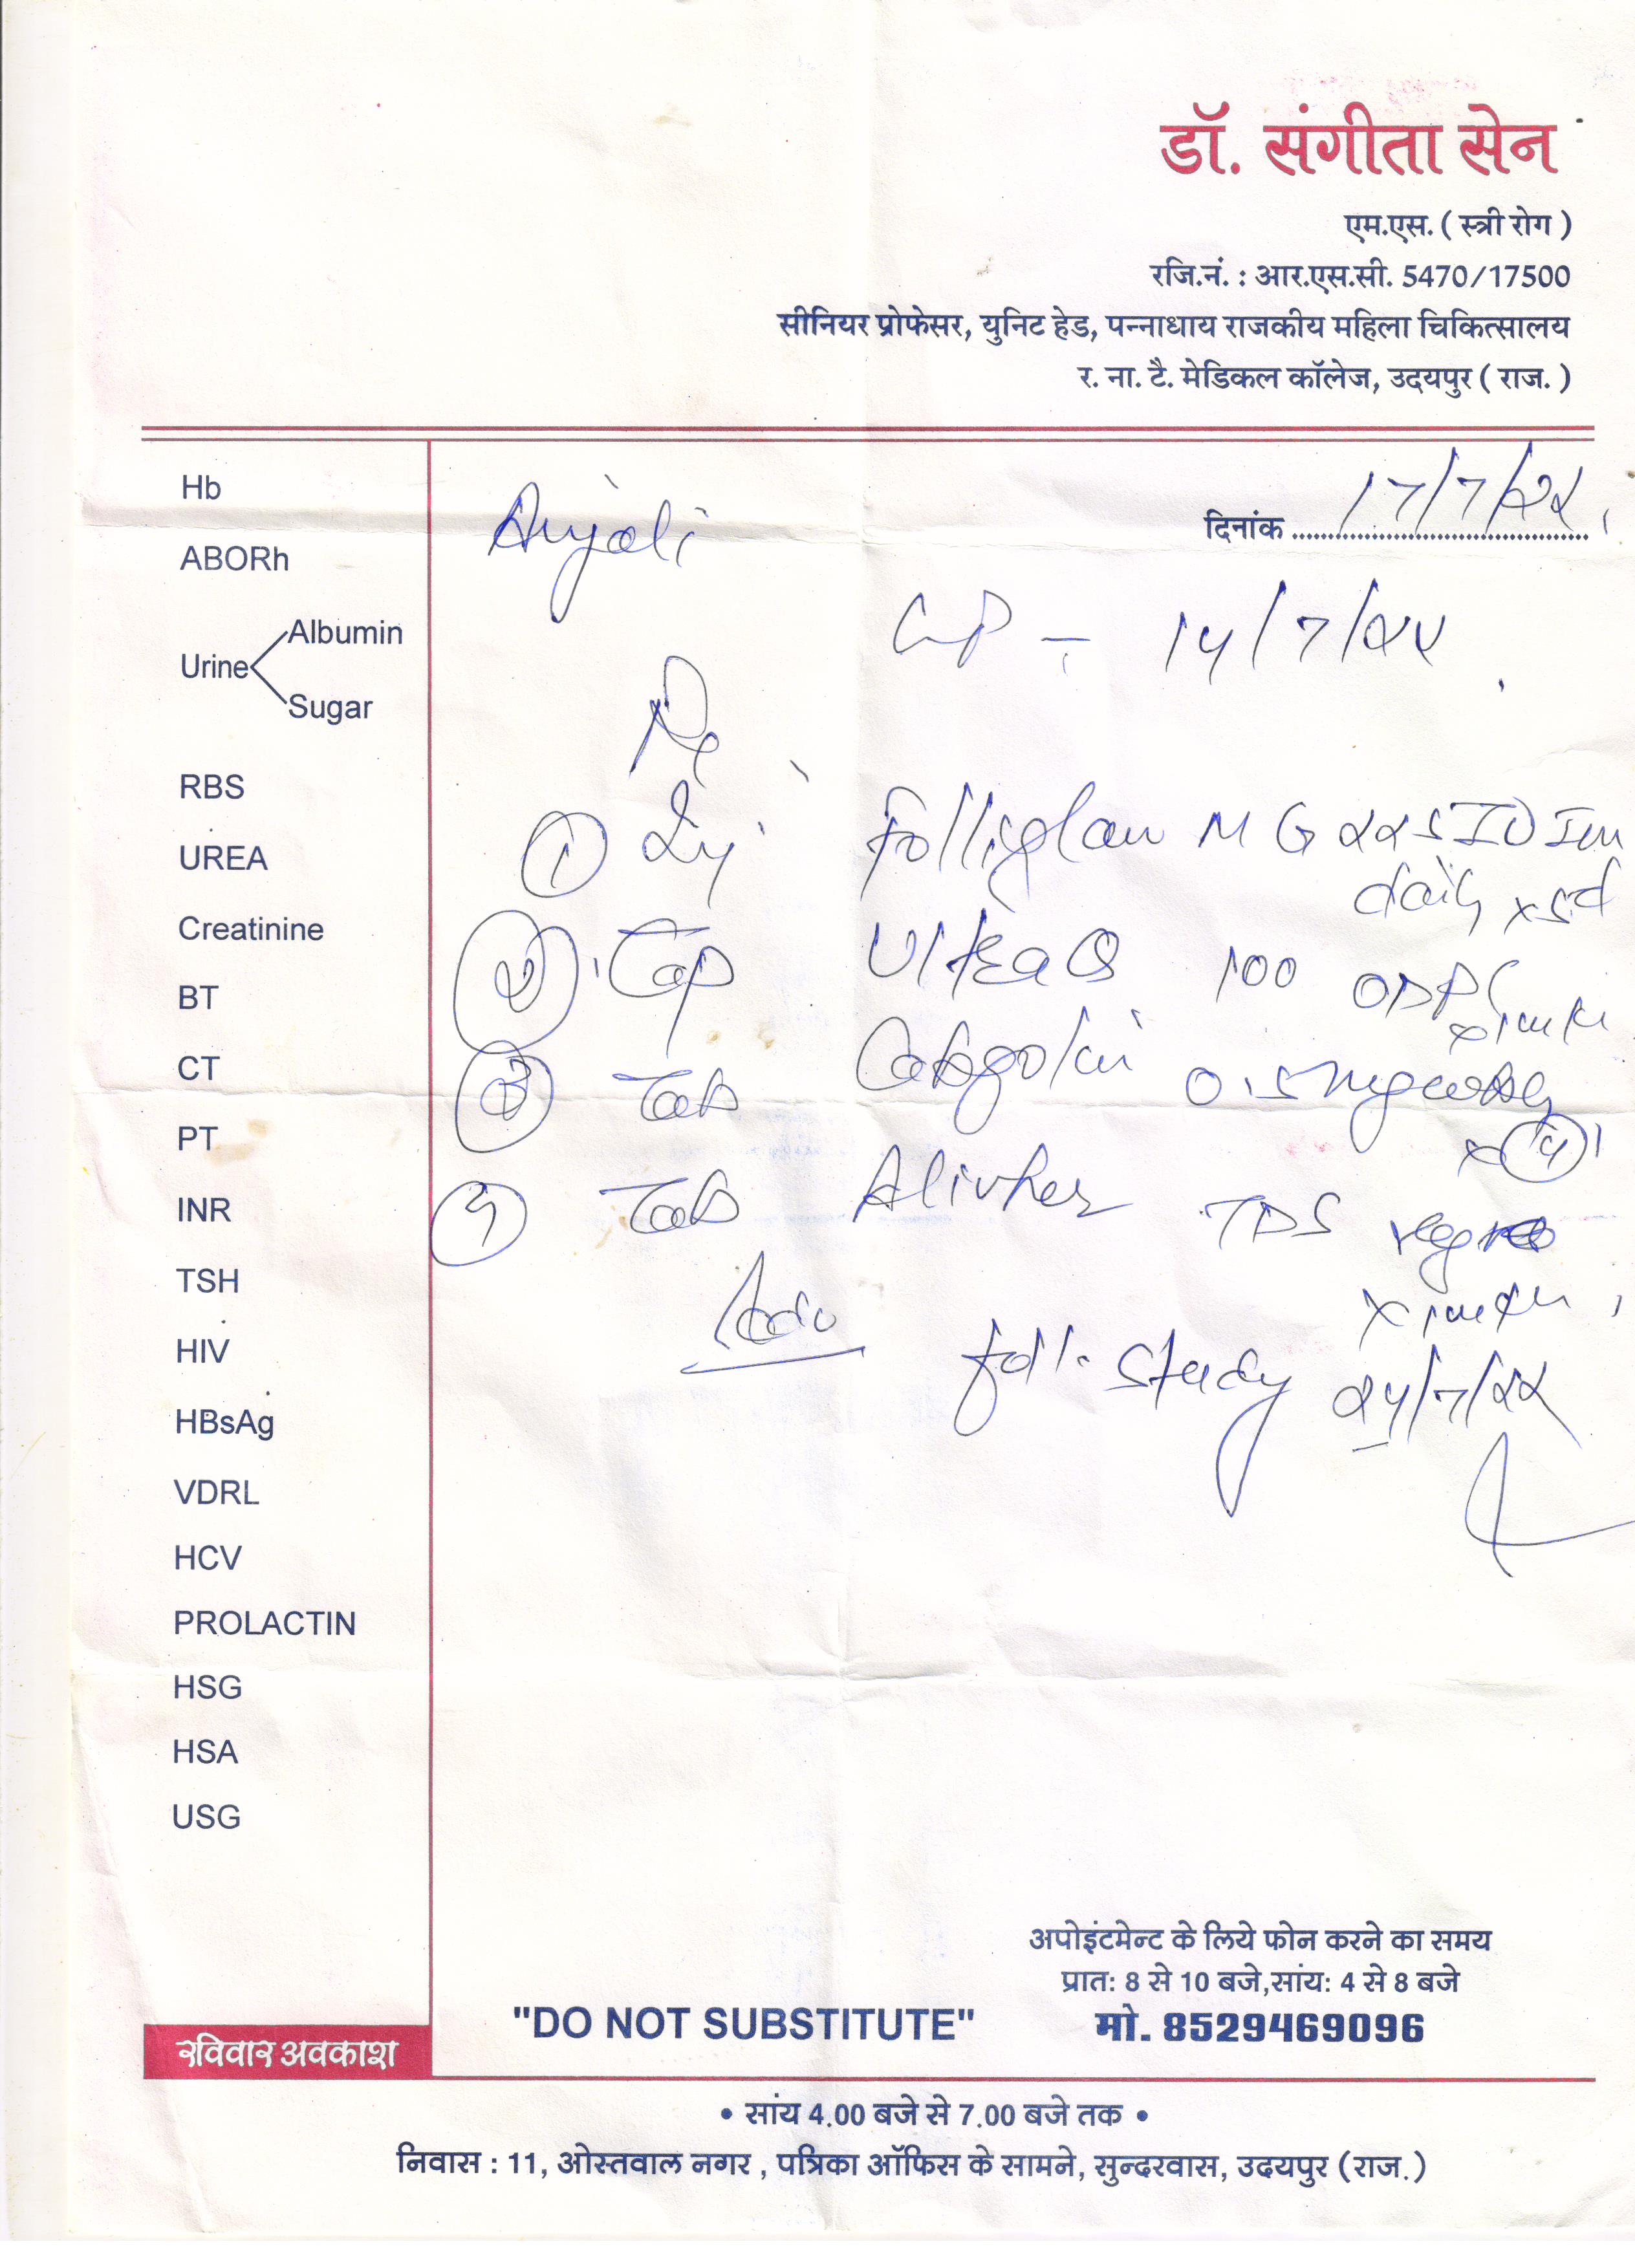 डॉ. संगीता सेन
एम.एस. ( स्त्री रोग )
रजि.नं. : आर.एस.सी. 5470/17500
सीनियर प्रोफेसर, युनिट हेड, पन्नाधाय राजकीय महिला चिकित्सालय
र. ना. टै. मेडिकल कॉलेज, उदयपुर ( राज. )
दिनांक 17/7/22
Anjali
LMP - 14/7/22
Rx
① Inj Folliglan M G 225 IU Im
daily x 5d
② Cap 100 OD
③ Tab Cabgolin 0.5mg weekly
x ④
④ Tab Alivher TDS
Adv
foll. study 24/7/22
Hb
ABORh
Urine
Albumin
Sugar
RBS
UREA
Creatinine
BT
CT
PT
INR
TSH
HIV
HBsAg
VDRL
HCV
PROLACTIN
HSG
HSA
USG
रविवार अवकाश
"DO NOT SUBSTITUTE"
अपोइंटमेन्ट के लिये फोन करने का समय
प्रात: 8 से 10 बजे,सांय: 4 से 8 बजे
मो. 8529469096
• सांय 4.00 बजे से 7.00 बजे तक •
निवास : 11, ओस्तवाल नगर , पत्रिका ऑफिस के सामने, सुन्दरवास, उदयपुर (राज.)